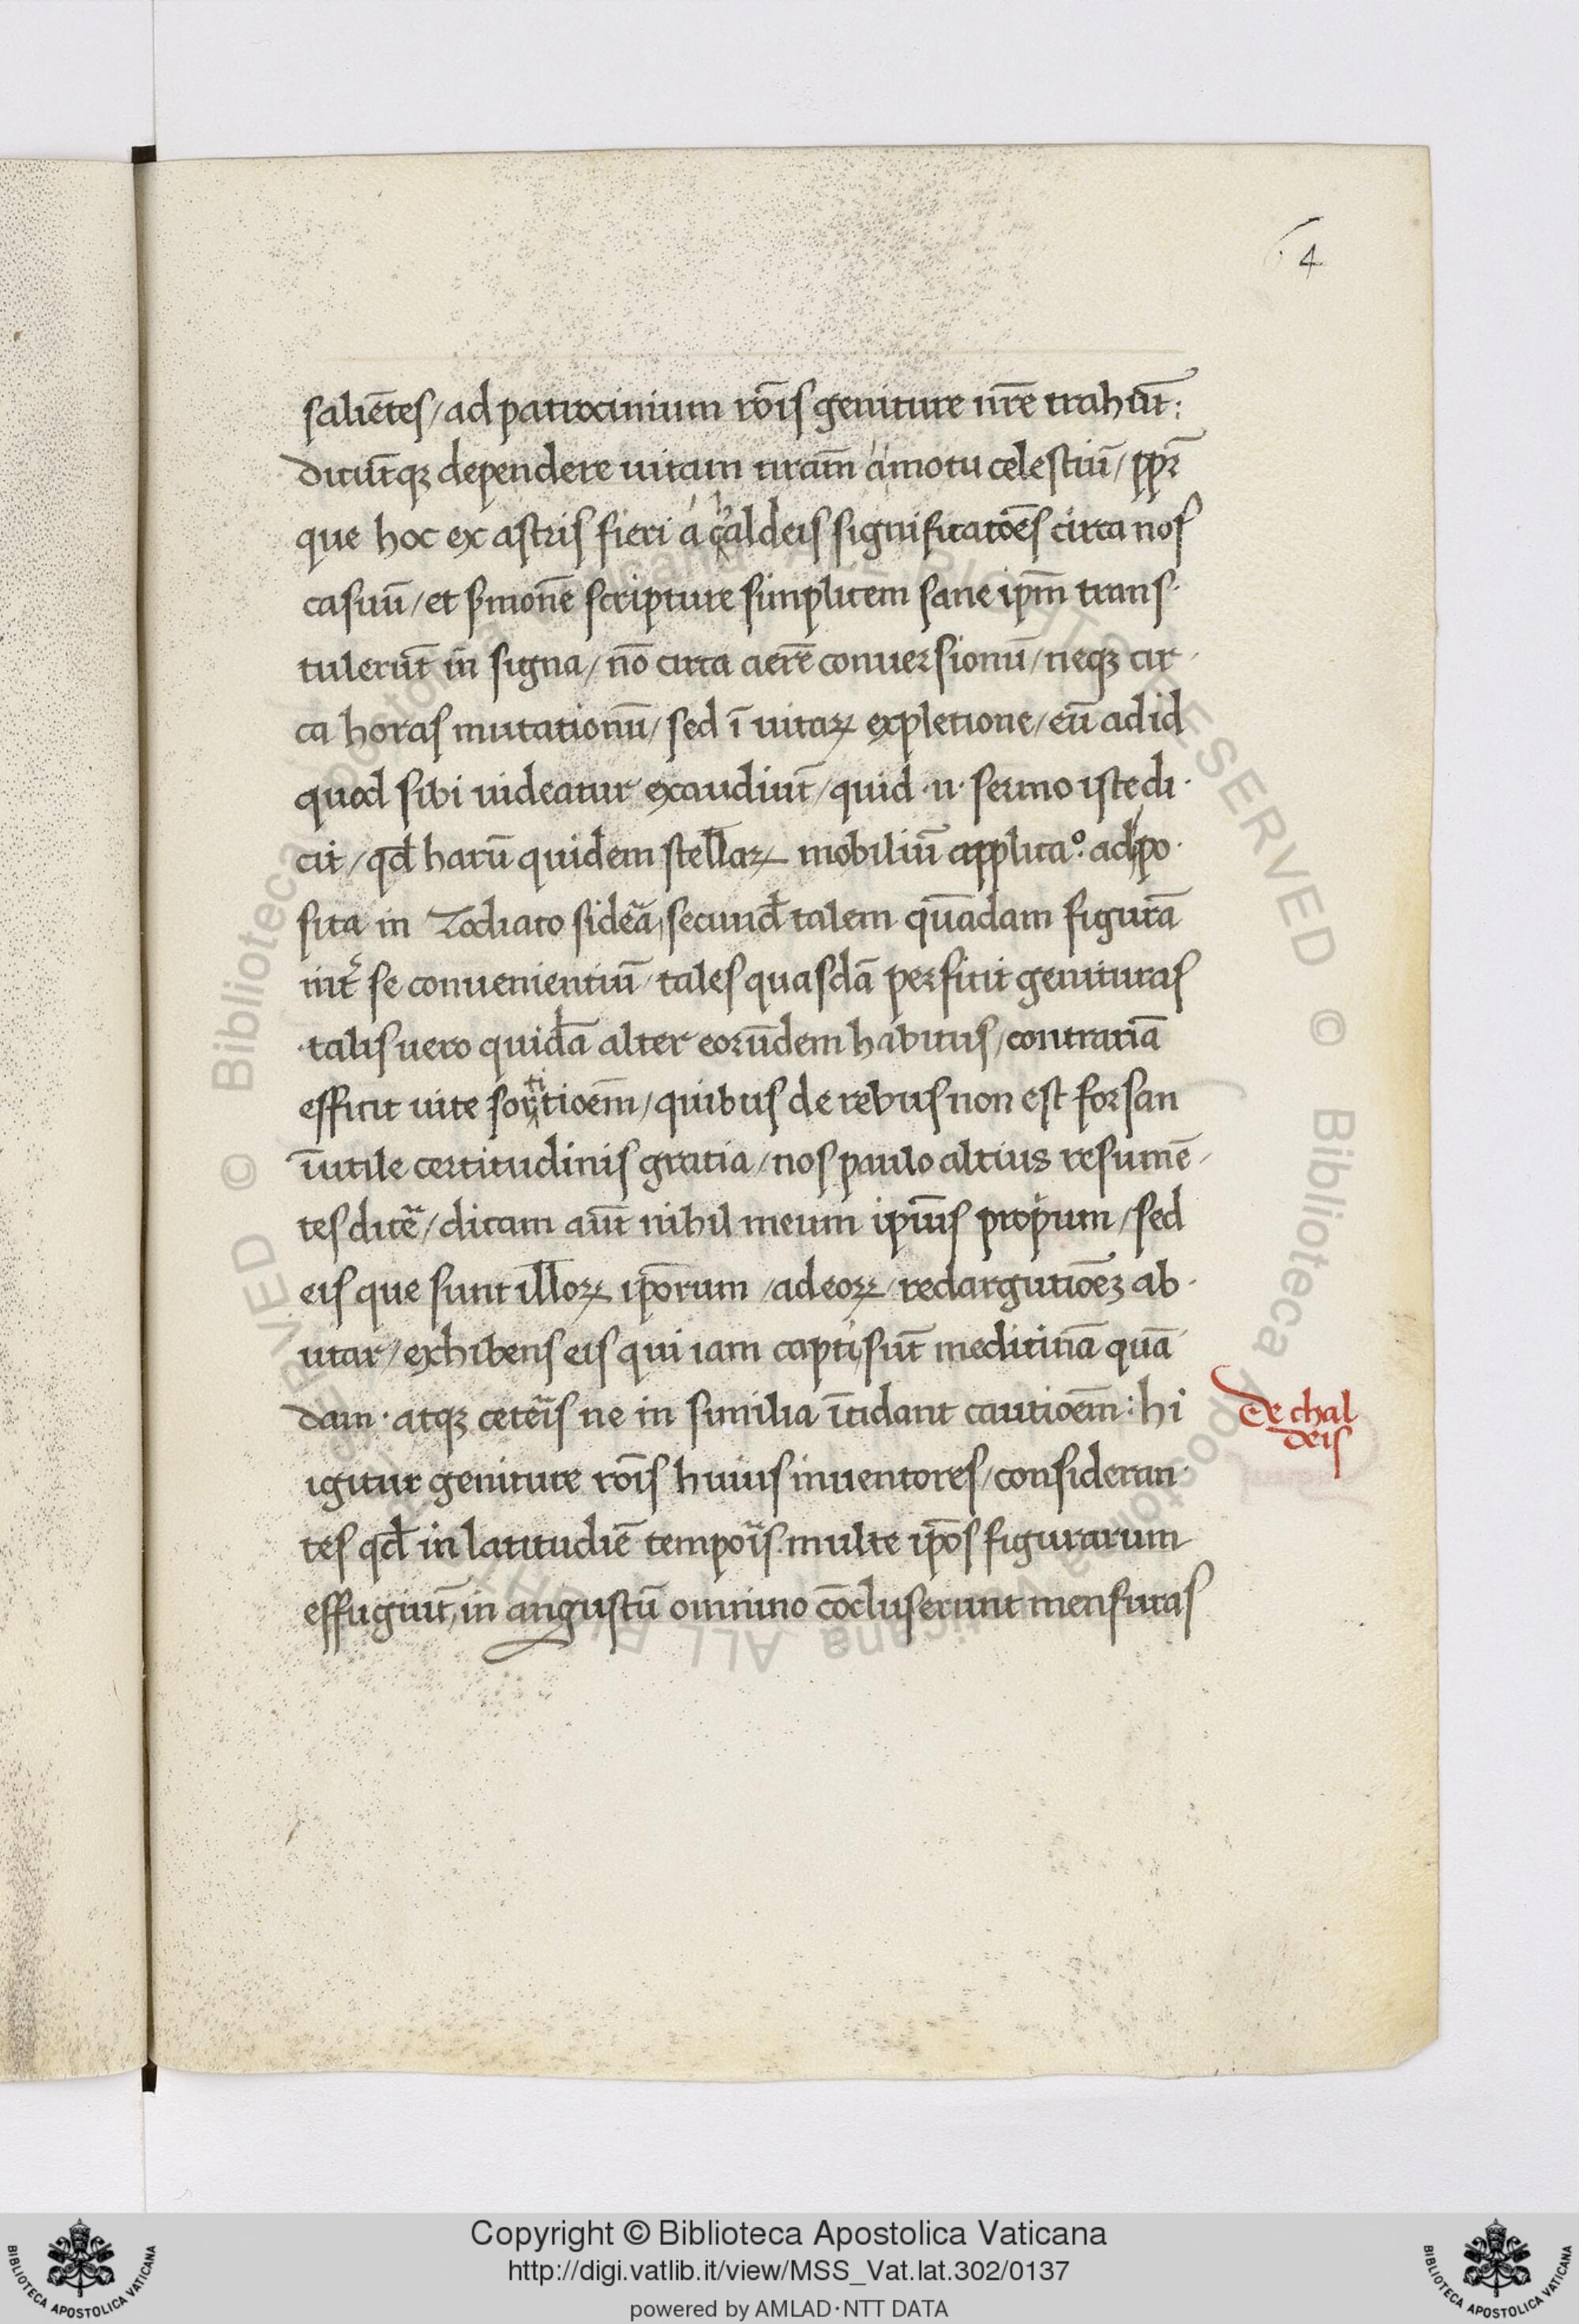 4
salie̅tes/ad patrocinium ro̅is geniture nr̅e trahu̅t:
dicu̅tqꝫ dependere uitam nram̅ a motu celestiu̅/ppꝛ̅
que hoc ex astris fieri a caldeis significatoe̅s circa nos
casuu̅/et smone̅ scripture simplicem sane ipm̅ trans·
tuleru̅t in signa/no̅ circa aere̅ conuersionu̅/neqꝫ cir·
ca horas mutationu̅/sed i̅ uitaꝝ expletione/eu̅ ad id
quod sibi uideatur exaudiu̅t/quid ·n· sermo iste di·
cit/qd̅ haru̅ quidem stellaꝝ mobiliu̅ applicaº: ad po·
sita in Zodiaco side̅a/secund̅ talem qua̅dam figura̅
int̅ se convenientiu̅/tales quasda̅ perficit genituras
·talis uero quida̅ alter eoru̅dem habitus/contraria̅
efficit uite so
ti
tioem̅/quibus de rebus non est forsan
i̅utile certitudinis gratia/nos paulo altius resume̅/
tes dice̅/dicam au̅t nihil meum ipi̅us propium/sed
eis que sunt illoꝝ ipo̅rum/ad eoꝝ/redargutioe̅ꝫ ab·
utar/exhibens eis qui iam capti su̅t medicina̅ qua̅
dam· atqꝫ cete̅is ne in similia i̅cidant cautioem̅: hi
De chal
deis
igitur geniture ro̅is huius inuentores/consideran·
tes qd̅ in latitudie̅ tempo̅is multe ipo̅s figurarum
effugiu̅t/in angustu̅ omnino co̅cluserunt mensuras
© Biblioteca Apostolica Vaticana ALL RIGHTS RESERVED
© Biblioteca Apostolica Vaticana ALL RIGHTS RESERVED
BIBLIOTECA APOSTOLICA VATICANA
Copyright © Biblioteca Apostolica Vaticana
http://digi.vatlib.it/view/MSS_Vat.lat.302/0137
powered by AMLAD·NTT DATA
BIBLIOTECA APOSTOLICA VATICANA